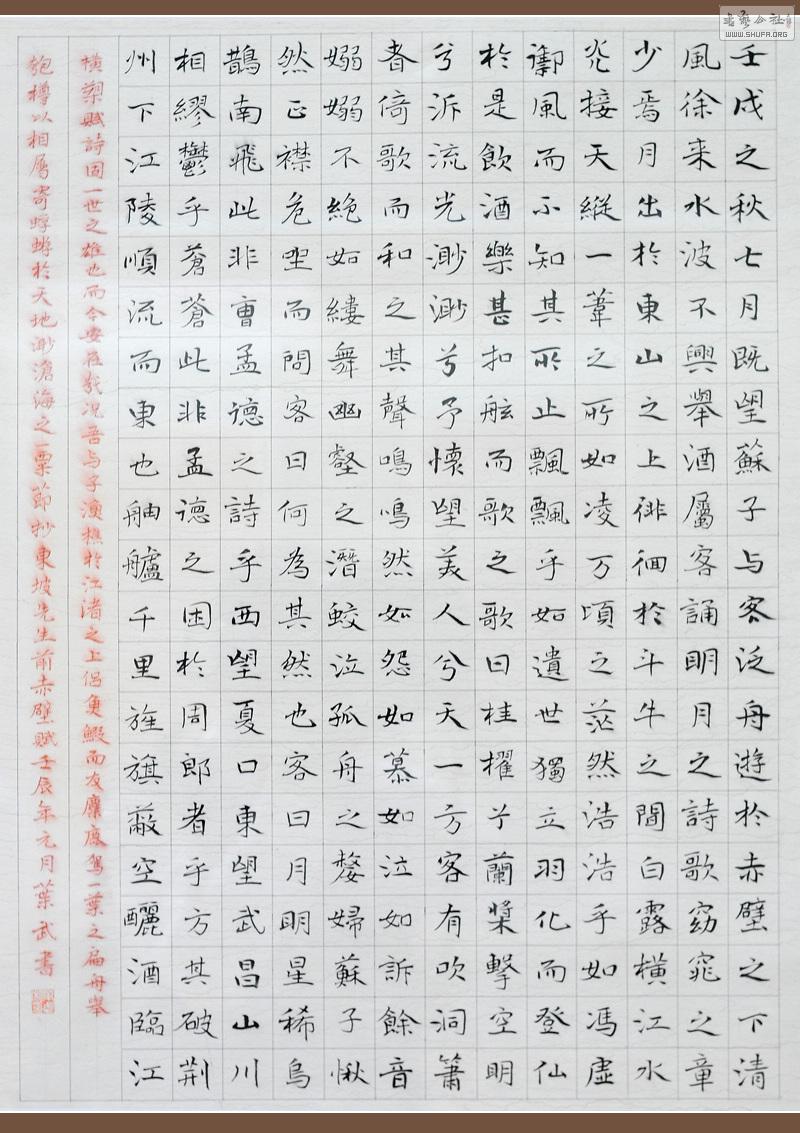 壬戌之秋七月既望蘇子与客泛舟遊於赤壁之下清
風徐来水波不興舉酒屬客誦明月之詩歌窈窕之章
少焉月出於東山之上徘徊於斗牛之間白露横江水
光接天縱一葦之所如凌万頃之茫然浩浩乎如馮虚
御風而不知其所止飄飄乎如遺世獨立羽化而登仙
於是飲酒樂甚扣舷而歌之歌曰桂櫂兮蘭槳擊空明
兮泝流光渺渺兮予懷望美人兮天一方客有吹洞簫
者倚歌而和之其聲鳴鳴然如怨如慕如泣如訴餘音
嫋嫋不絶如縷舞幽壑之潛蛟泣孤舟之嫠婦蘇子愀
然正襟危坐而問客曰何為其然也客曰月明星稀烏
鵲南飛此非曹孟德之詩乎西望夏口東望武昌山川
相繆鬱乎蒼蒼此非孟德之困於周郎者乎方其破荆
州下江陵順流而東也舳艫千里旌旗蔽空釃酒臨江
横槊賦詩固一世之雄也而今安在哉况吾与子漁樵於江渚之上侶魚鰕而友麋鹿駕一葉之扁舟舉
匏樽以相屬寄蜉蝣於天地渺滄海之一粟節抄東坡先生前赤壁賦壬辰年元月葉武書
書藝公社
WWW.SHUFA.ORG